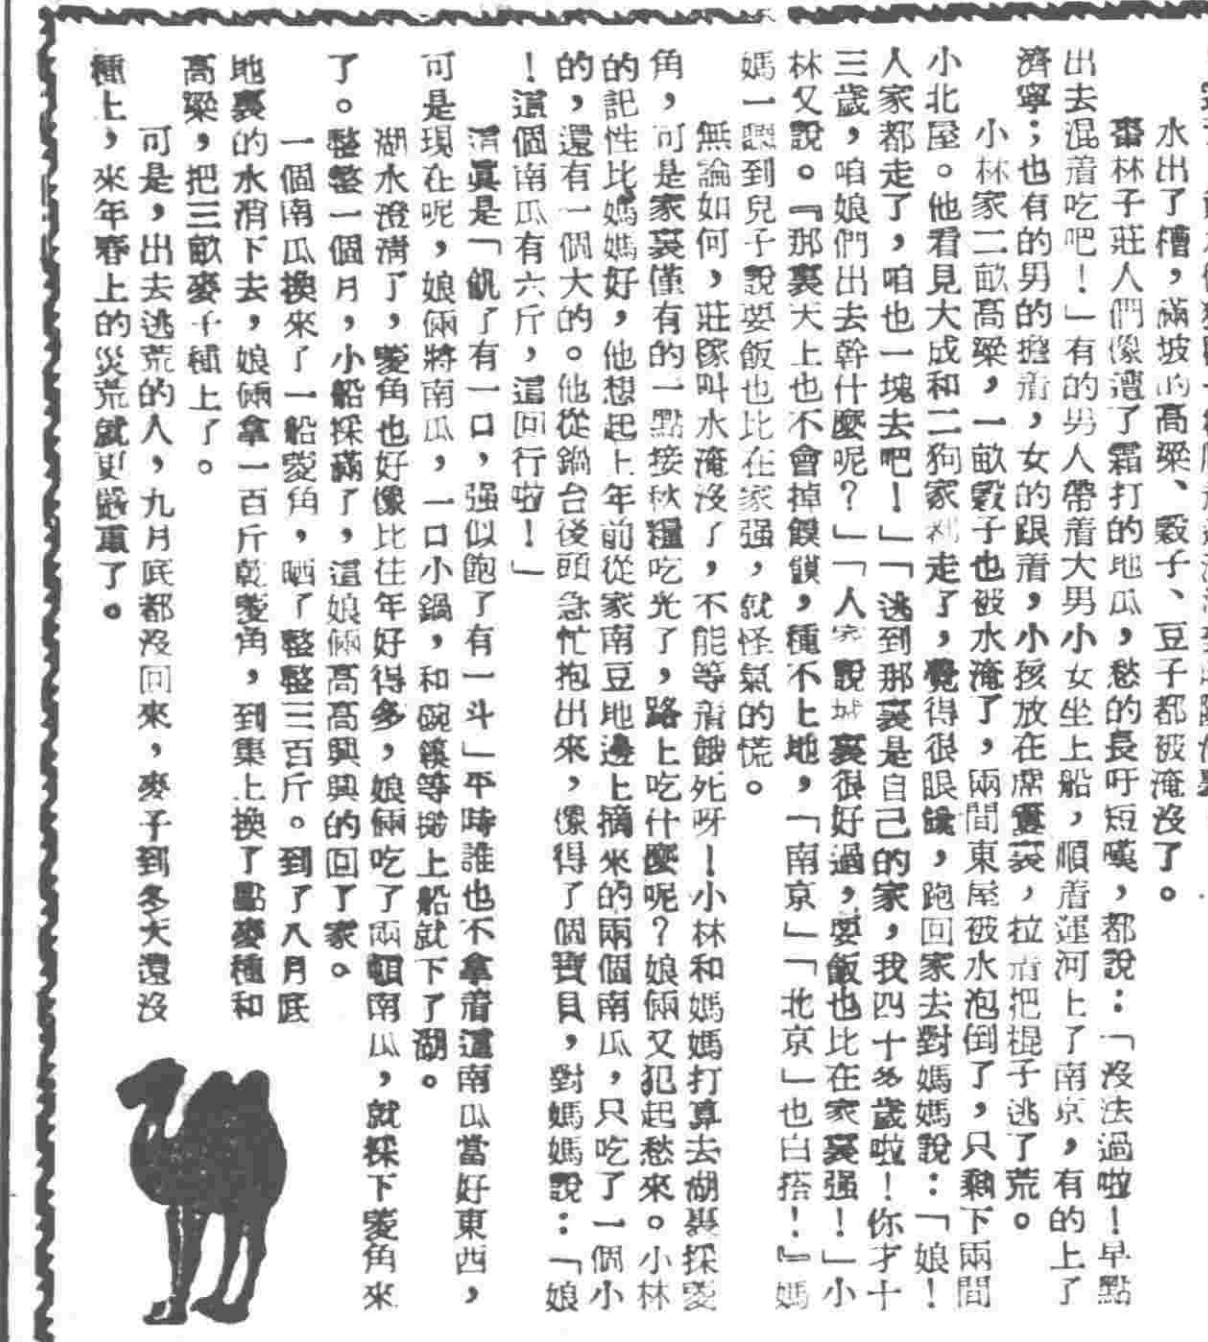 水出了槽，滿坡的高粱、穀子、豆子都被淹沒了。
棗林子莊人們像遭了霜打的地瓜，愁的長吁短嘆，都說：「沒法過啦！早點
出去混着吃吧！」有的男人帶着大男小女坐上船，順着運河上了南京，有的上了
濟寧；也有的男的擔着，女的跟着，小孩放在席簍裏，拉着把棍子逃了荒。
小林家二畝高粱，一畝穀子也被水淹了，兩間東屋被水泡倒了，只剩下兩間
小北屋。他看見大成和二狗家走了，覺得很眼饞，跑回家去對媽媽說：「娘！
人家都走了，咱也一塊去吧！」「逃到那裏是自己的家，我四十多歲啦！你才十
三歲，咱娘們出去幹什麼呢？」「人家說城裏很好過，要飯也比在家裏强！」小
林又說。『那裏天上也不會掉饃饃，種不上地，「南京」「北京」也白搭！』媽
媽一聽到兒子說要飯也比在家强，就怪氣的慌。
無論如何，莊稼叫水淹沒了，不能等着餓死呀！小林和媽媽打算去湖裏採菱
角，可是家裏僅有的一點接秋糧吃光了，路上吃什麼呢？娘倆又犯起愁來。小林
的記性比媽媽好，他想起上年前從家南豆地邊上摘來的兩個南瓜，只吃了一個小
的，還有一個大的。他從鍋台後頭急忙抱出來，像得了個寶貝，對媽媽說：「娘
！這個南瓜有六斤，這回行啦！」
這真是「飢了有一口，强似飽了有一斗」平時誰也不拿着這南瓜當好東西，
可是現在呢，娘倆將南瓜，一口小鍋，和碗筷等搬上船就下了湖。
湖水澄清了，菱角也好像比往年好得多，娘倆吃了兩頓南瓜，就採下菱角來
了。整整一個月，小船採滿了，這娘倆高高興興的回了家。
一個南瓜換來了一船菱角，晒了整整三百斤。到了八月底
地裏的水消下去，娘倆拿一百斤乾菱角，到集上換了點麥種和
高粱，把三畝麥子種上了。
可是，出去逃荒的人，九月底都沒回來，麥子到冬天還沒
種上，來年春上的災荒就更嚴重了。